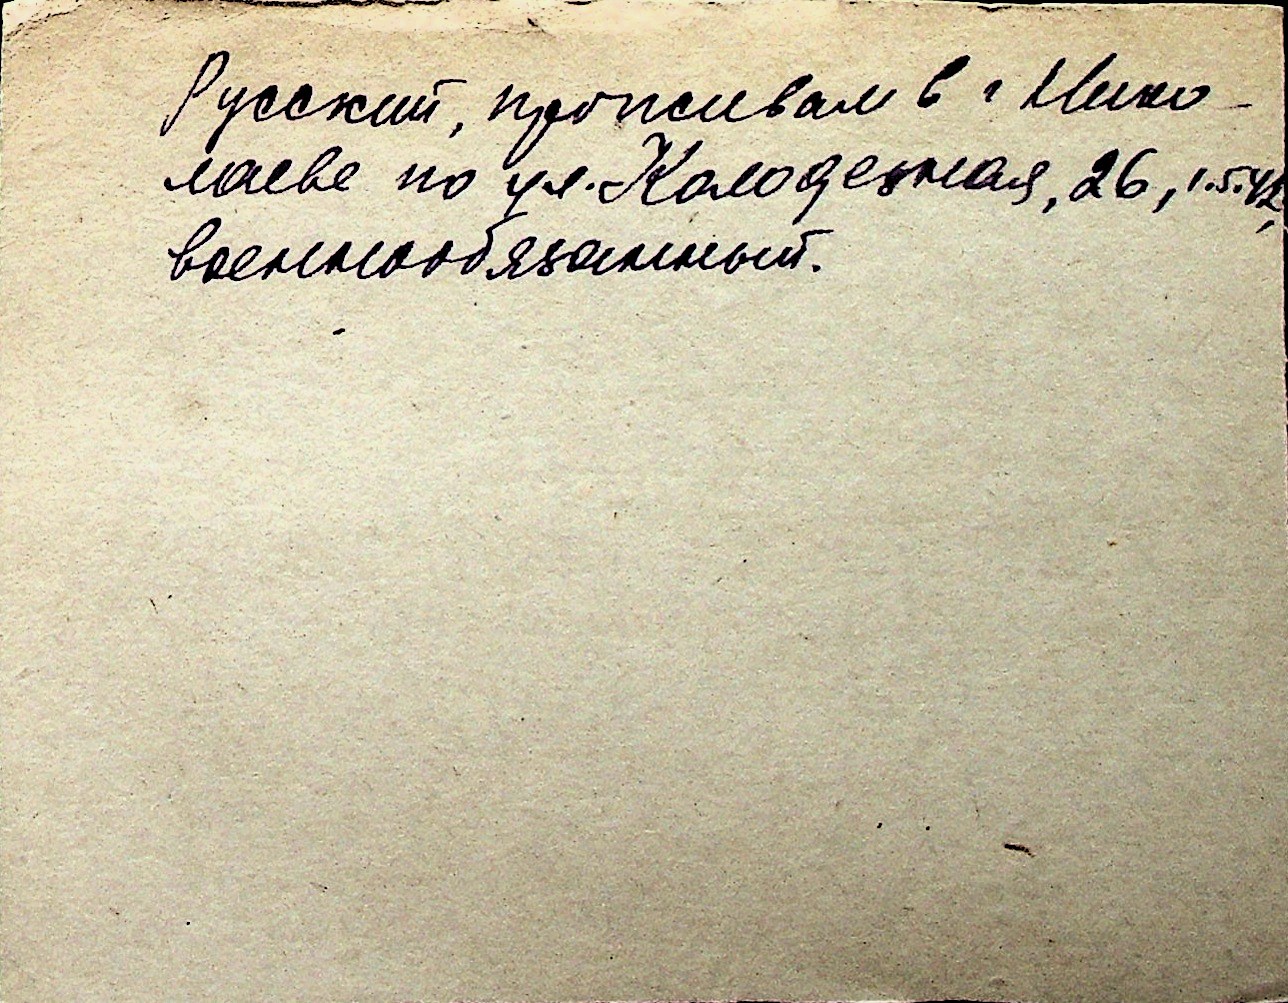 Русский, проживал в г Нико-
лаеве по ул. Колодезная, 26, 1.5.42,
военнообязанный.